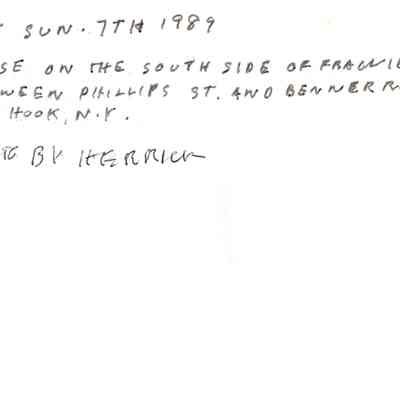 SUN. 7TH 1989
SE ON THE SOUTH SIDE OF FRANKLI
WEEN PHILLIPS ST. AND BENNER R
HOOK, N.Y.
BY HERRICK